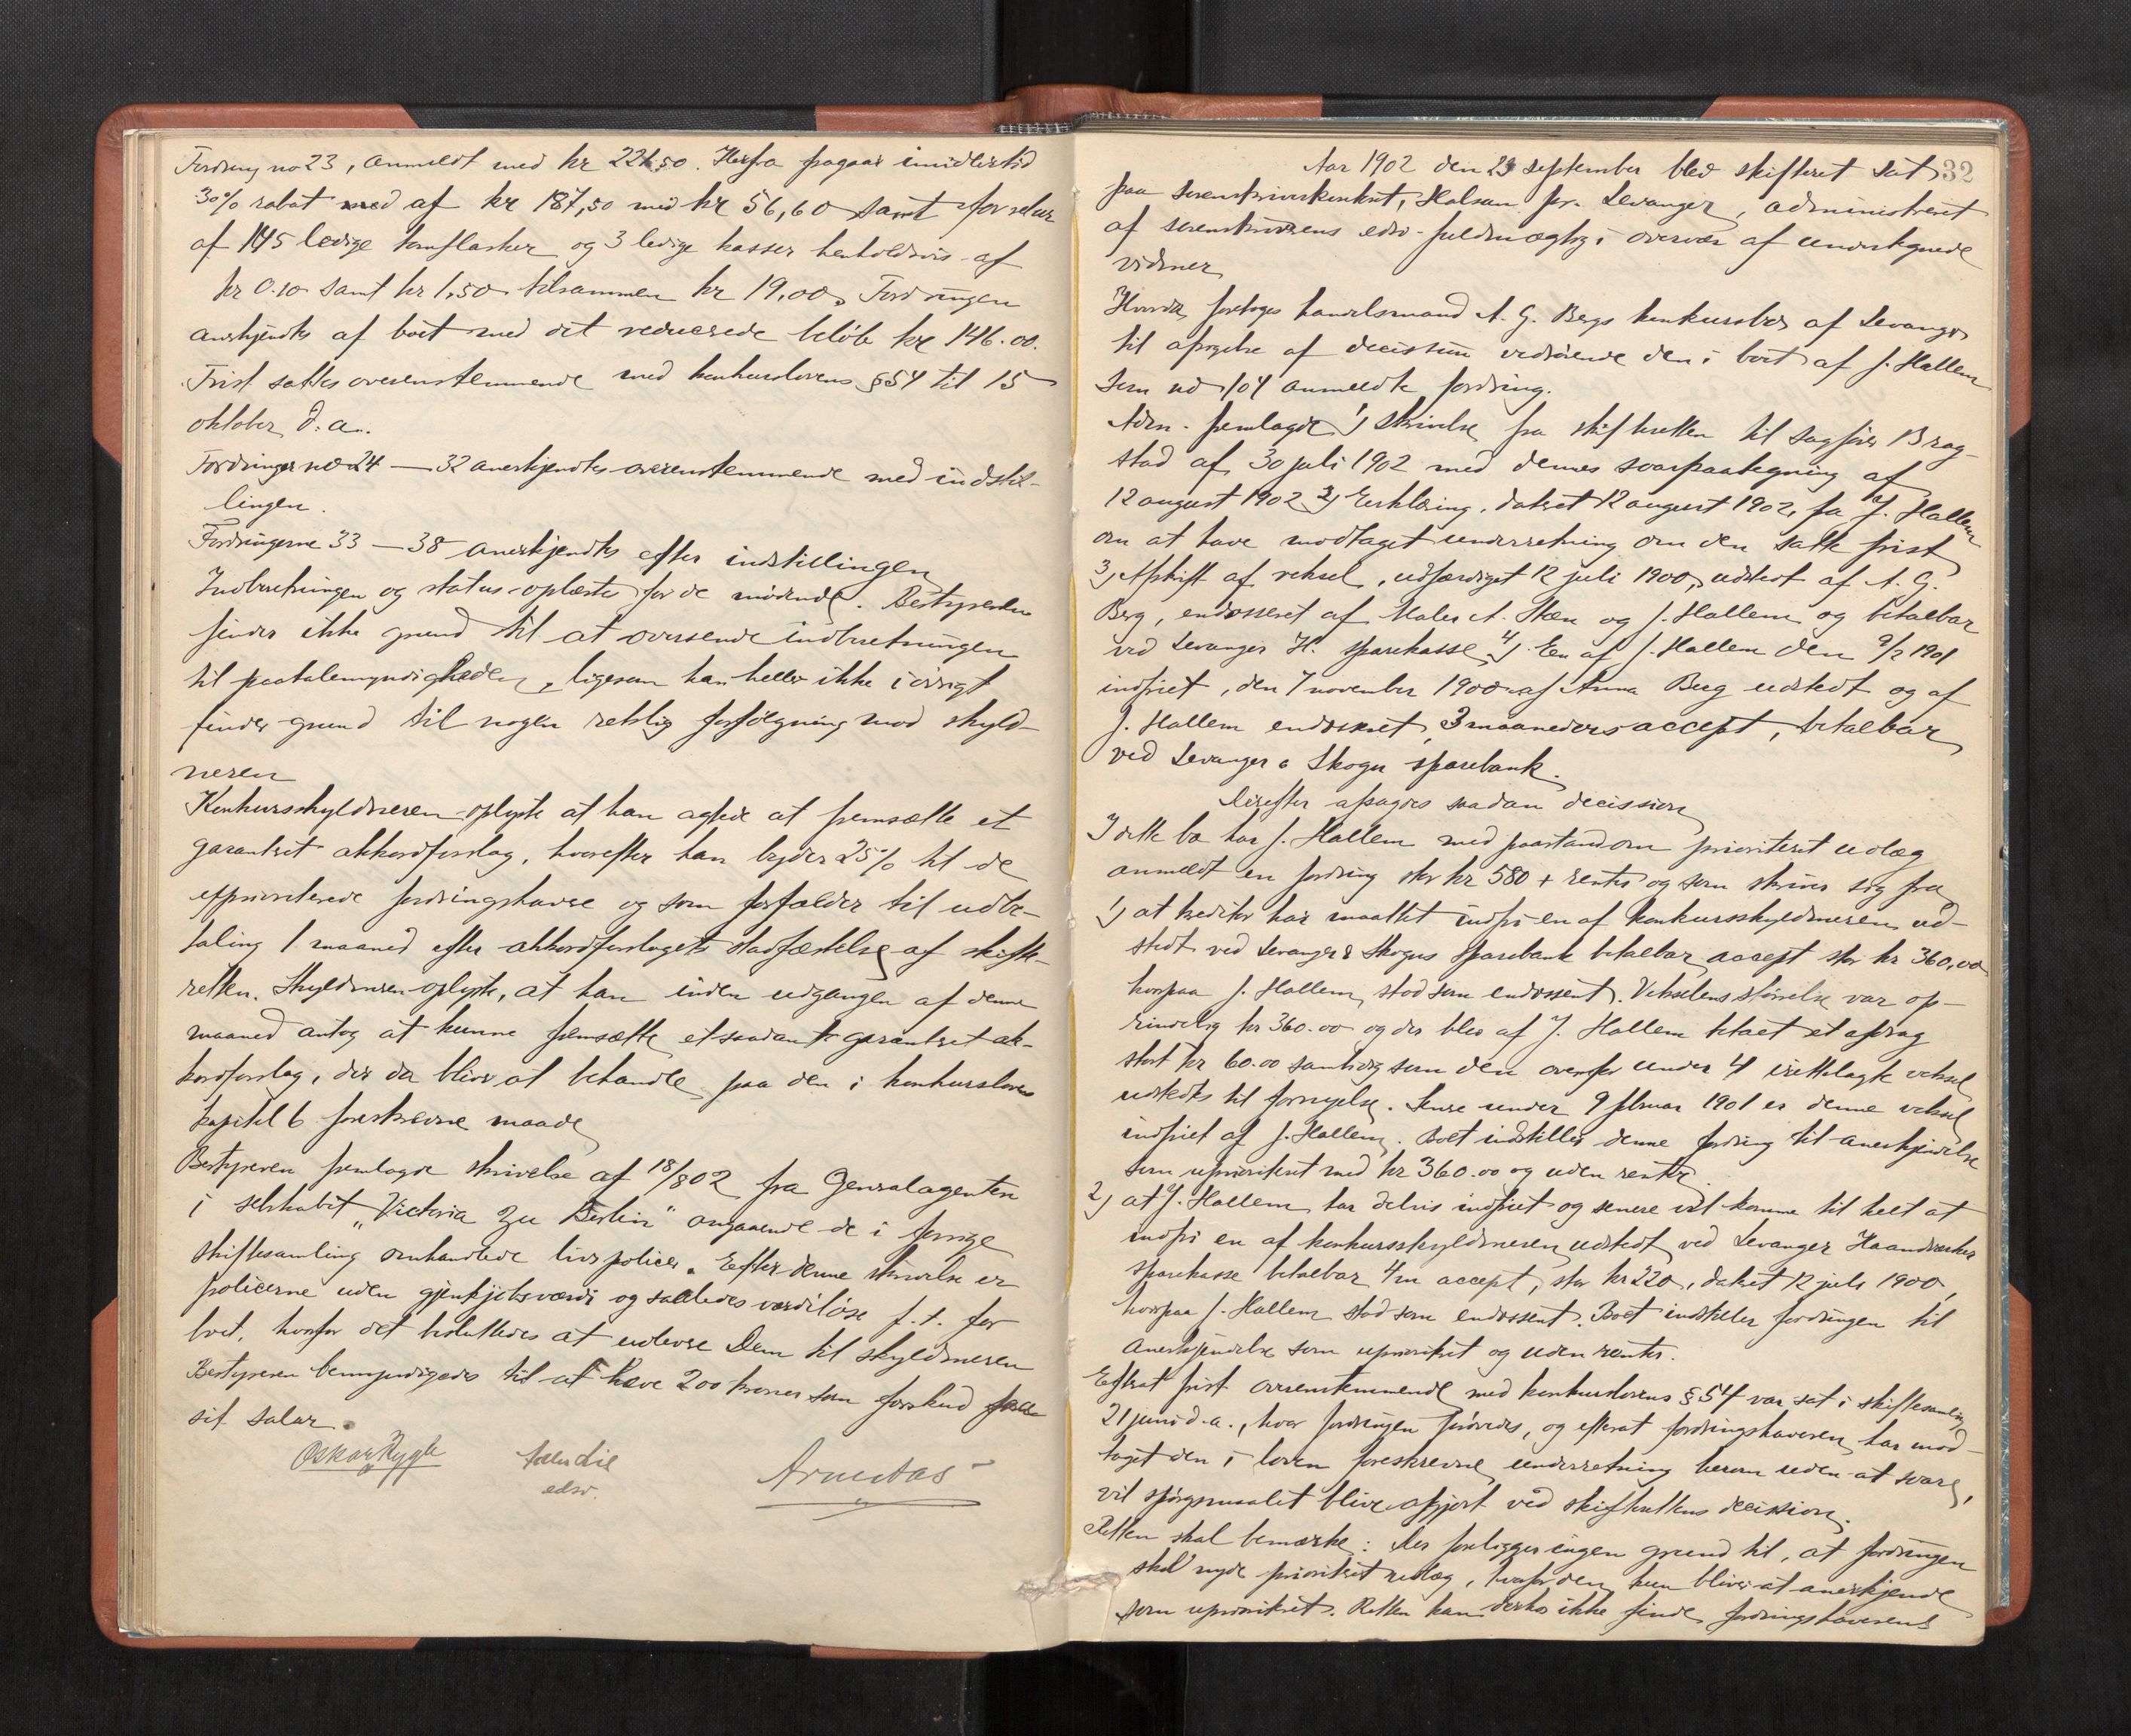 Fordring no 23, anmeldt med kr 221.50. Herfra fragaar imidlertid
30% rabat med af kr 187,50 med kr 56,60 samt for retur
af 145 ledige tomflasker og 3 ledige kasser henholdsvis af
kr 0.10 samt kr 1,50 tilsammen kr 19,00. Fordringen
anerkjendtes af boet med det reducerede beløb kr 146.00.
Frist sattes overenstemmende med konkurslovens § 54 til 15
oktober d.a.
Fordringer no 24 — 32 anerkjendtes overenstemmende med indstil-
lingen.
Fordringerne 33 — 38 anerkjendtes efter indstillingen
Indberetningen og status oplæstes for de mødende. Bestyreren
finder ikke grund til at oversende indberetningen
til paatalemyndigheden, ligesom han heller ikke i øvrigt
finder grund til nogen retslig forfølgning mod skyld-
neren
Konkursskyldneren oplyste at han agtede at fremsætte et
garanteret akkordforslag, hvorefter han byder 25% til de
uprioriterede fordringshavere og som forfalder til udbe-
taling 1 maaned efter akkordforslagets stadfæstelse af skifte-
retten. Skyldneren oplyste, at han inden udgangen af denne
maaned antog at kunne fremsætte et saadant garanteret ak-
kordforslag, der da bliver at behandle paa den i konkursloven
kapitel 6 foreskrevne maade
Bestyreren fremlagde skrivelse af 18/8 02 fra Generalagenten
i selskabet "Victoria zu Berlin" angaaende de i forrige
skiftesamling omhandlede livspolicer. Efter denne skrivelse er
policerne uden gjenkjøbsværdi og saaledes værdiløse f.t. for
boet, hvorfor det besluttedes at udlevere dem til skyldneren
Bestyreren bemyndigedes til at hæve 200 kroner som forskud paa
sit salær.
Oskar Rygh
edsv.
Aar 1902 den 23 september blev skifteret sat 32
paa sorenskriverkontoret, Halsan pr. Levanger, administreret
af sorenskriverens edsv. fuldmægtig i overvær af undertegnede
vidner
Hvorda foretoges handelsmand A. G. Bergs konkursbo af Levanger
til afsigelse af decission vedrørende den i boet af J. Hallem
som no 104 anmeldte fordring.
Adm. fremlagde 1) Skrivelse fra skifteretten til sagfører Brag-
stad af 30 juli 1902 med dennes svarpaategning af
12 august 1902 2) Erklæring, dateret 12 august 1902, fra J. Hallem
om at have modtaget underretning om den satte frist
3) Afskrift af veksel, udfærdiget 12 juli 1900, udstedt af A. G.
Berg, endosseret af Maler A. Steen og J. Hallem og betalbar
ved Levanger H. sparekasse 4) En af J. Hallem den 9/2 1901
indfriet, den 7 november 1900 af Anna Berg udstedt og af
J. Hallem endosseret, 3 maaneders accept, betalbar
ved Levanger & Skogn sparebank.
Derefter afsagdes saadan decission
I dette bo har J. Hallem med paastand om prioriteret udlæg
anmeldt en fordring stor kr 580 + renter og som skriver sig fra
1) at kreditor har maattet indfri en af konkursskyldneren ud-
stedt ved Levanger & Skogns Sparebank betalbar accept stor kr 360,00
hvorpaa J. Hallem stod som endossent. Vekselens størrelse var op-
rindelig kr 360.00 og der blev af J. Hallem betalt et afdrag
stort kr 60.00 samtidig som den ovenfor under 4 irettelagte veksel
udstedtes til fornyelse. Senere under 9 februar 1901 er denne veksel
indfriet af J. Hallem. Boet indstiller denne fordring til anerkjendelse
som uprioriteret med kr 360.00 og uden renter.
2) at J. Hallem har delvis indfriet og senere vil komme til helt at
indfri en af konkursskyldneren udstedt ved Levanger Haandværker
sparekasse betalbar 4/m accept, stor kr 220, dateret 12 juli 1900,
hvorpaa J. Hallem stod som endossent. Boet indstiller fordringen til
anerkjendelse som uprioriteret og uden renter.
Efterat frist overenstemmende med konkurslovens § 54 var sat i skiftesamling
21 juni d.a., hvor fordringen prøvedes, og efterat fordringshaveren har mod-
taget den i loven foreskrevne underretning herom uden at svare,
vil spørgsmaalet blive afgjort ved skifterettens decission.
Retten skal bemærke: Der foreligger ingen grund til, at fordringen
skal nyde prioriteret udlæg, hvorfor den kun bliver at anerkjende
som uprioriteret. Retten kan derhos ikke finde fordringshaverens